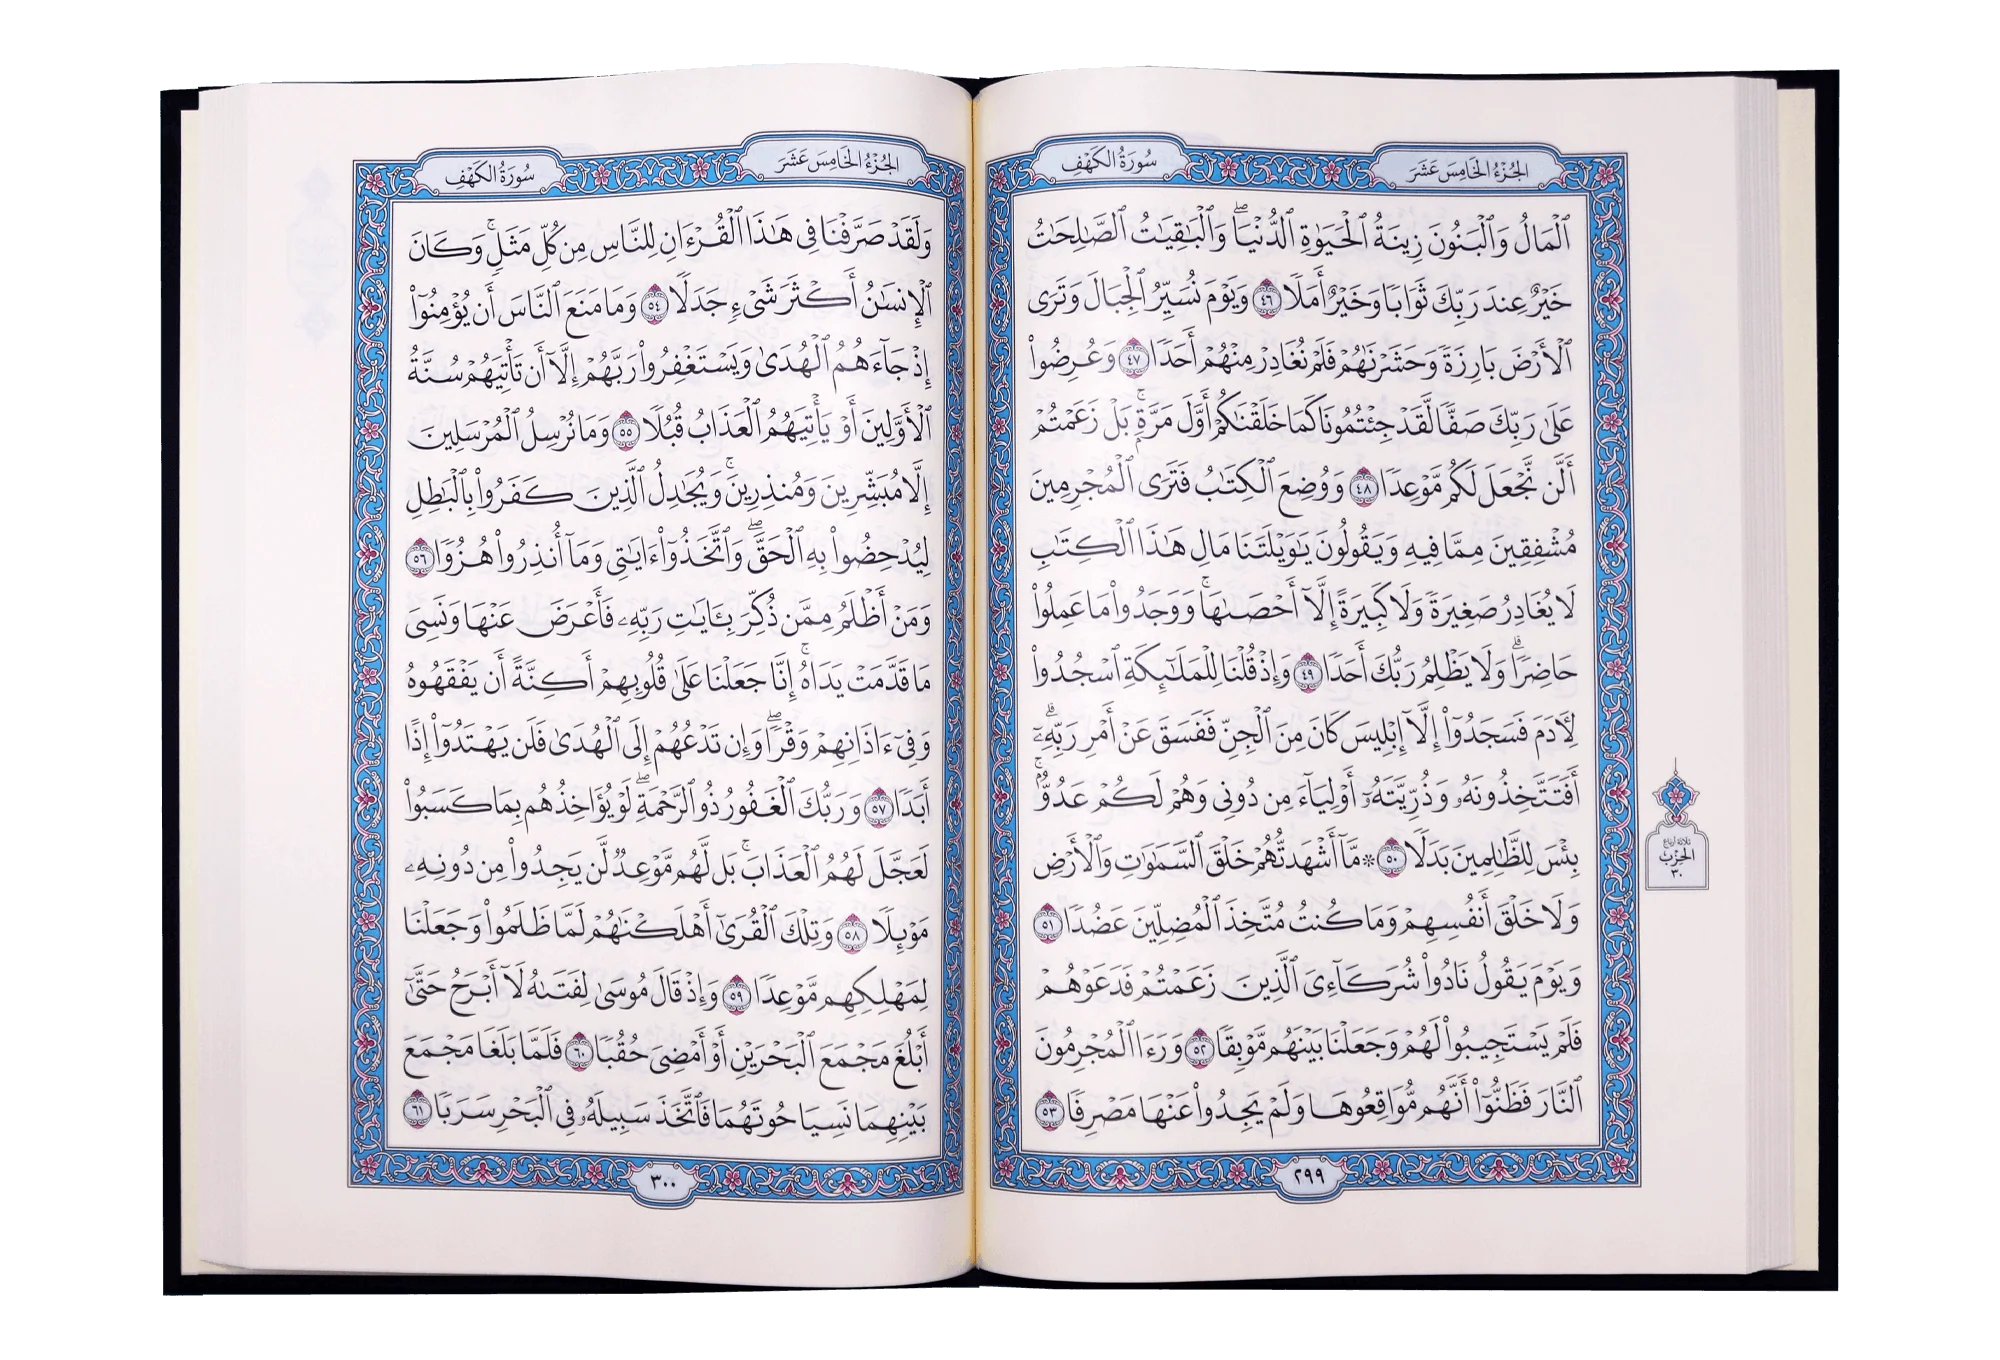 الجُزْءُ الخَامِسَ عَشَرَ
سُورَةُ الكَهْفِ
ٱلْمَالُ وَٱلْبَنُونَ زِينَةُ ٱلْحَيَوٰةِ ٱلدُّنْيَاۖ وَٱلْبَٰقِيَٰتُ ٱلصَّٰلِحَٰتُ
خَيْرٌ عِندَ رَبِّكَ ثَوَابًا وَخَيْرٌ أَمَلًا ٤٦ وَيَوْمَ نُسَيِّرُ ٱلْجِبَالَ وَتَرَى
ٱلْأَرْضَ بَارِزَةً وَحَشَرْنَٰهُمْ فَلَمْ نُغَادِرْ مِنْهُمْ أَحَدًا ٤٧ وَعُرِضُوا۟
عَلَىٰ رَبِّكَ صَفًّا لَّقَدْ جِئْتُمُونَا كَمَا خَلَقْنَٰكُمْ أَوَّلَ مَرَّةٍۭۚ بَلْ زَعَمْتُمْ
أَلَّن نَّجْعَلَ لَكُم مَّوْعِدًا ٤٨ وَوُضِعَ ٱلْكِتَٰبُ فَتَرَى ٱلْمُجْرِمِينَ
مُشْفِقِينَ مِمَّا فِيهِ وَيَقُولُونَ يَٰوَيْلَتَنَا مَالِ هَٰذَا ٱلْكِتَٰبِ
لَا يُغَادِرُ صَغِيرَةً وَلَا كَبِيرَةً إِلَّآ أَحْصَىٰهَاۚ وَوَجَدُوا۟ مَا عَمِلُوا۟
حَاضِرًاۗ وَلَا يَظْلِمُ رَبُّكَ أَحَدًا ٤٩ وَإِذْ قُلْنَا لِلْمَلَٰٓئِكَةِ ٱسْجُدُوا۟
لِـَٔادَمَ فَسَجَدُوٓا۟ إِلَّآ إِبْلِيسَ كَانَ مِنَ ٱلْجِنِّ فَفَسَقَ عَنْ أَمْرِ رَبِّهِۦٓۗ
أَفَتَتَّخِذُونَهُۥ وَذُرِّيَّتَهُۥٓ أَوْلِيَآءَ مِن دُونِى وَهُمْ لَكُمْ عَدُوٌّۢۚ
بِئْسَ لِلظَّٰلِمِينَ بَدَلًا ٥٠ ۞ مَّآ أَشْهَدتُّهُمْ خَلْقَ ٱلسَّمَٰوَٰتِ وَٱلْأَرْضِ
وَلَا خَلْقَ أَنفُسِهِمْ وَمَا كُنتُ مُتَّخِذَ ٱلْمُضِلِّينَ عَضُدًا ٥١
وَيَوْمَ يَقُولُ نَادُوا۟ شُرَكَآءِىَ ٱلَّذِينَ زَعَمْتُمْ فَدَعَوْهُمْ
فَلَمْ يَسْتَجِيبُوا۟ لَهُمْ وَجَعَلْنَا بَيْنَهُم مَّوْبِقًا ٥٢ وَرَءَا ٱلْمُجْرِمُونَ
ٱلنَّارَ فَظَنُّوٓا۟ أَنَّهُم مُّوَاقِعُوهَا وَلَمْ يَجِدُوا۟ عَنْهَا مَصْرِفًا ٥٣
٢٩٩
ثلاثة أرباع
الحِزْبِ
٣٠
الجُزْءُ الخَامِسَ عَشَرَ
سُورَةُ الكَهْفِ
وَلَقَدْ صَرَّفْنَا فِى هَٰذَا ٱلْقُرْءَانِ لِلنَّاسِ مِن كُلِّ مَثَلٍۚ وَكَانَ
ٱلْإِنسَٰنُ أَكْثَرَ شَىْءٍ جَدَلًا ٥٤ وَمَا مَنَعَ ٱلنَّاسَ أَن يُؤْمِنُوٓا۟
إِذْ جَآءَهُمُ ٱلْهُدَىٰ وَيَسْتَغْفِرُوا۟ رَبَّهُمْ إِلَّآ أَن تَأْتِيَهُمْ سُنَّةُ
ٱلْأَوَّلِينَ أَوْ يَأْتِيَهُمُ ٱلْعَذَابُ قُبُلًا ٥٥ وَمَا نُرْسِلُ ٱلْمُرْسَلِينَ
إِلَّا مُبَشِّرِينَ وَمُنذِرِينَۚ وَيُجَٰدِلُ ٱلَّذِينَ كَفَرُوا۟ بِٱلْبَٰطِلِ
لِيُدْحِضُوا۟ بِهِ ٱلْحَقَّۖ وَٱتَّخَذُوٓا۟ ءَايَٰتِى وَمَآ أُنذِرُوا۟ هُزُوًا ٥٦
وَمَنْ أَظْلَمُ مِمَّن ذُكِّرَ بِـَٔايَٰتِ رَبِّهِۦ فَأَعْرَضَ عَنْهَا وَنَسِىَ
مَا قَدَّمَتْ يَدَاهُۚ إِنَّا جَعَلْنَا عَلَىٰ قُلُوبِهِمْ أَكِنَّةً أَن يَفْقَهُوهُ
وَفِىٓ ءَاذَانِهِمْ وَقْرًاۖ وَإِن تَدْعُهُمْ إِلَى ٱلْهُدَىٰ فَلَن يَهْتَدُوٓا۟ إِذًا
أَبَدًا ٥٧ وَرَبُّكَ ٱلْغَفُورُ ذُو ٱلرَّحْمَةِۖ لَوْ يُؤَاخِذُهُم بِمَا كَسَبُوا۟
لَعَجَّلَ لَهُمُ ٱلْعَذَابَۚ بَل لَّهُم مَّوْعِدٌ لَّن يَجِدُوا۟ مِن دُونِهِۦ
مَوْئِلًا ٥٨ وَتِلْكَ ٱلْقُرَىٰٓ أَهْلَكْنَٰهُمْ لَمَّا ظَلَمُوا۟ وَجَعَلْنَا
لِمَهْلِكِهِم مَّوْعِدًا ٥٩ وَإِذْ قَالَ مُوسَىٰ لِفَتَىٰهُ لَآ أَبْرَحُ حَتَّىٰٓ
أَبْلُغَ مَجْمَعَ ٱلْبَحْرَيْنِ أَوْ أَمْضِىَ حُقُبًا ٦٠ فَلَمَّا بَلَغَا مَجْمَعَ
بَيْنِهِمَا نَسِيَا حُوتَهُمَا فَٱتَّخَذَ سَبِيلَهُۥ فِى ٱلْبَحْرِ سَرَبًا ٦١
٣٠٠